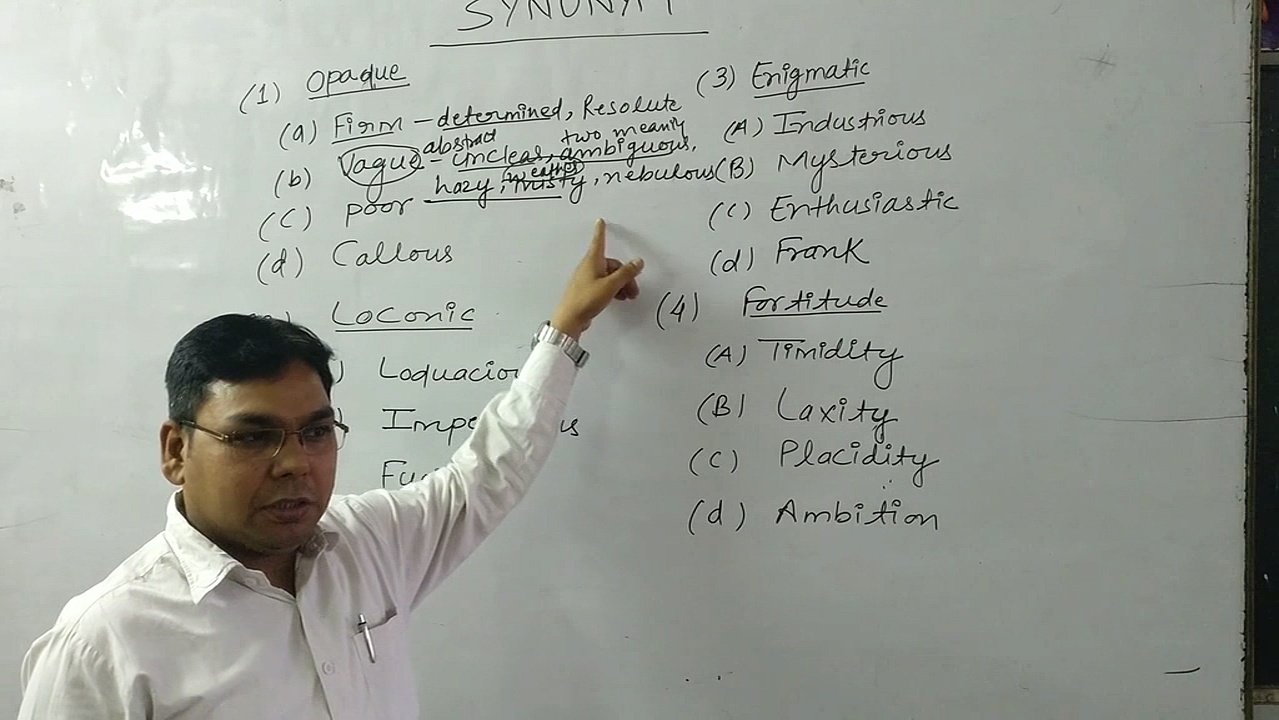 SYNONYM
(1) Opaque
(a) Firm - determined, Resolute
abstract two meanin
(b) Vague - unclear, ambiguous,
weather
hazy, misty, nebulous
(C) Poor
(d) Callous
Loconic
Loquacio
Impe us
Fu
(3) Enigmatic
(A) Industrious
(B) Mysterious
(C) Enthusiastic
(d) Frank
(4) Fortitude
(A) Timidity
(B) Laxity
(C) Placidity
(d) Ambition